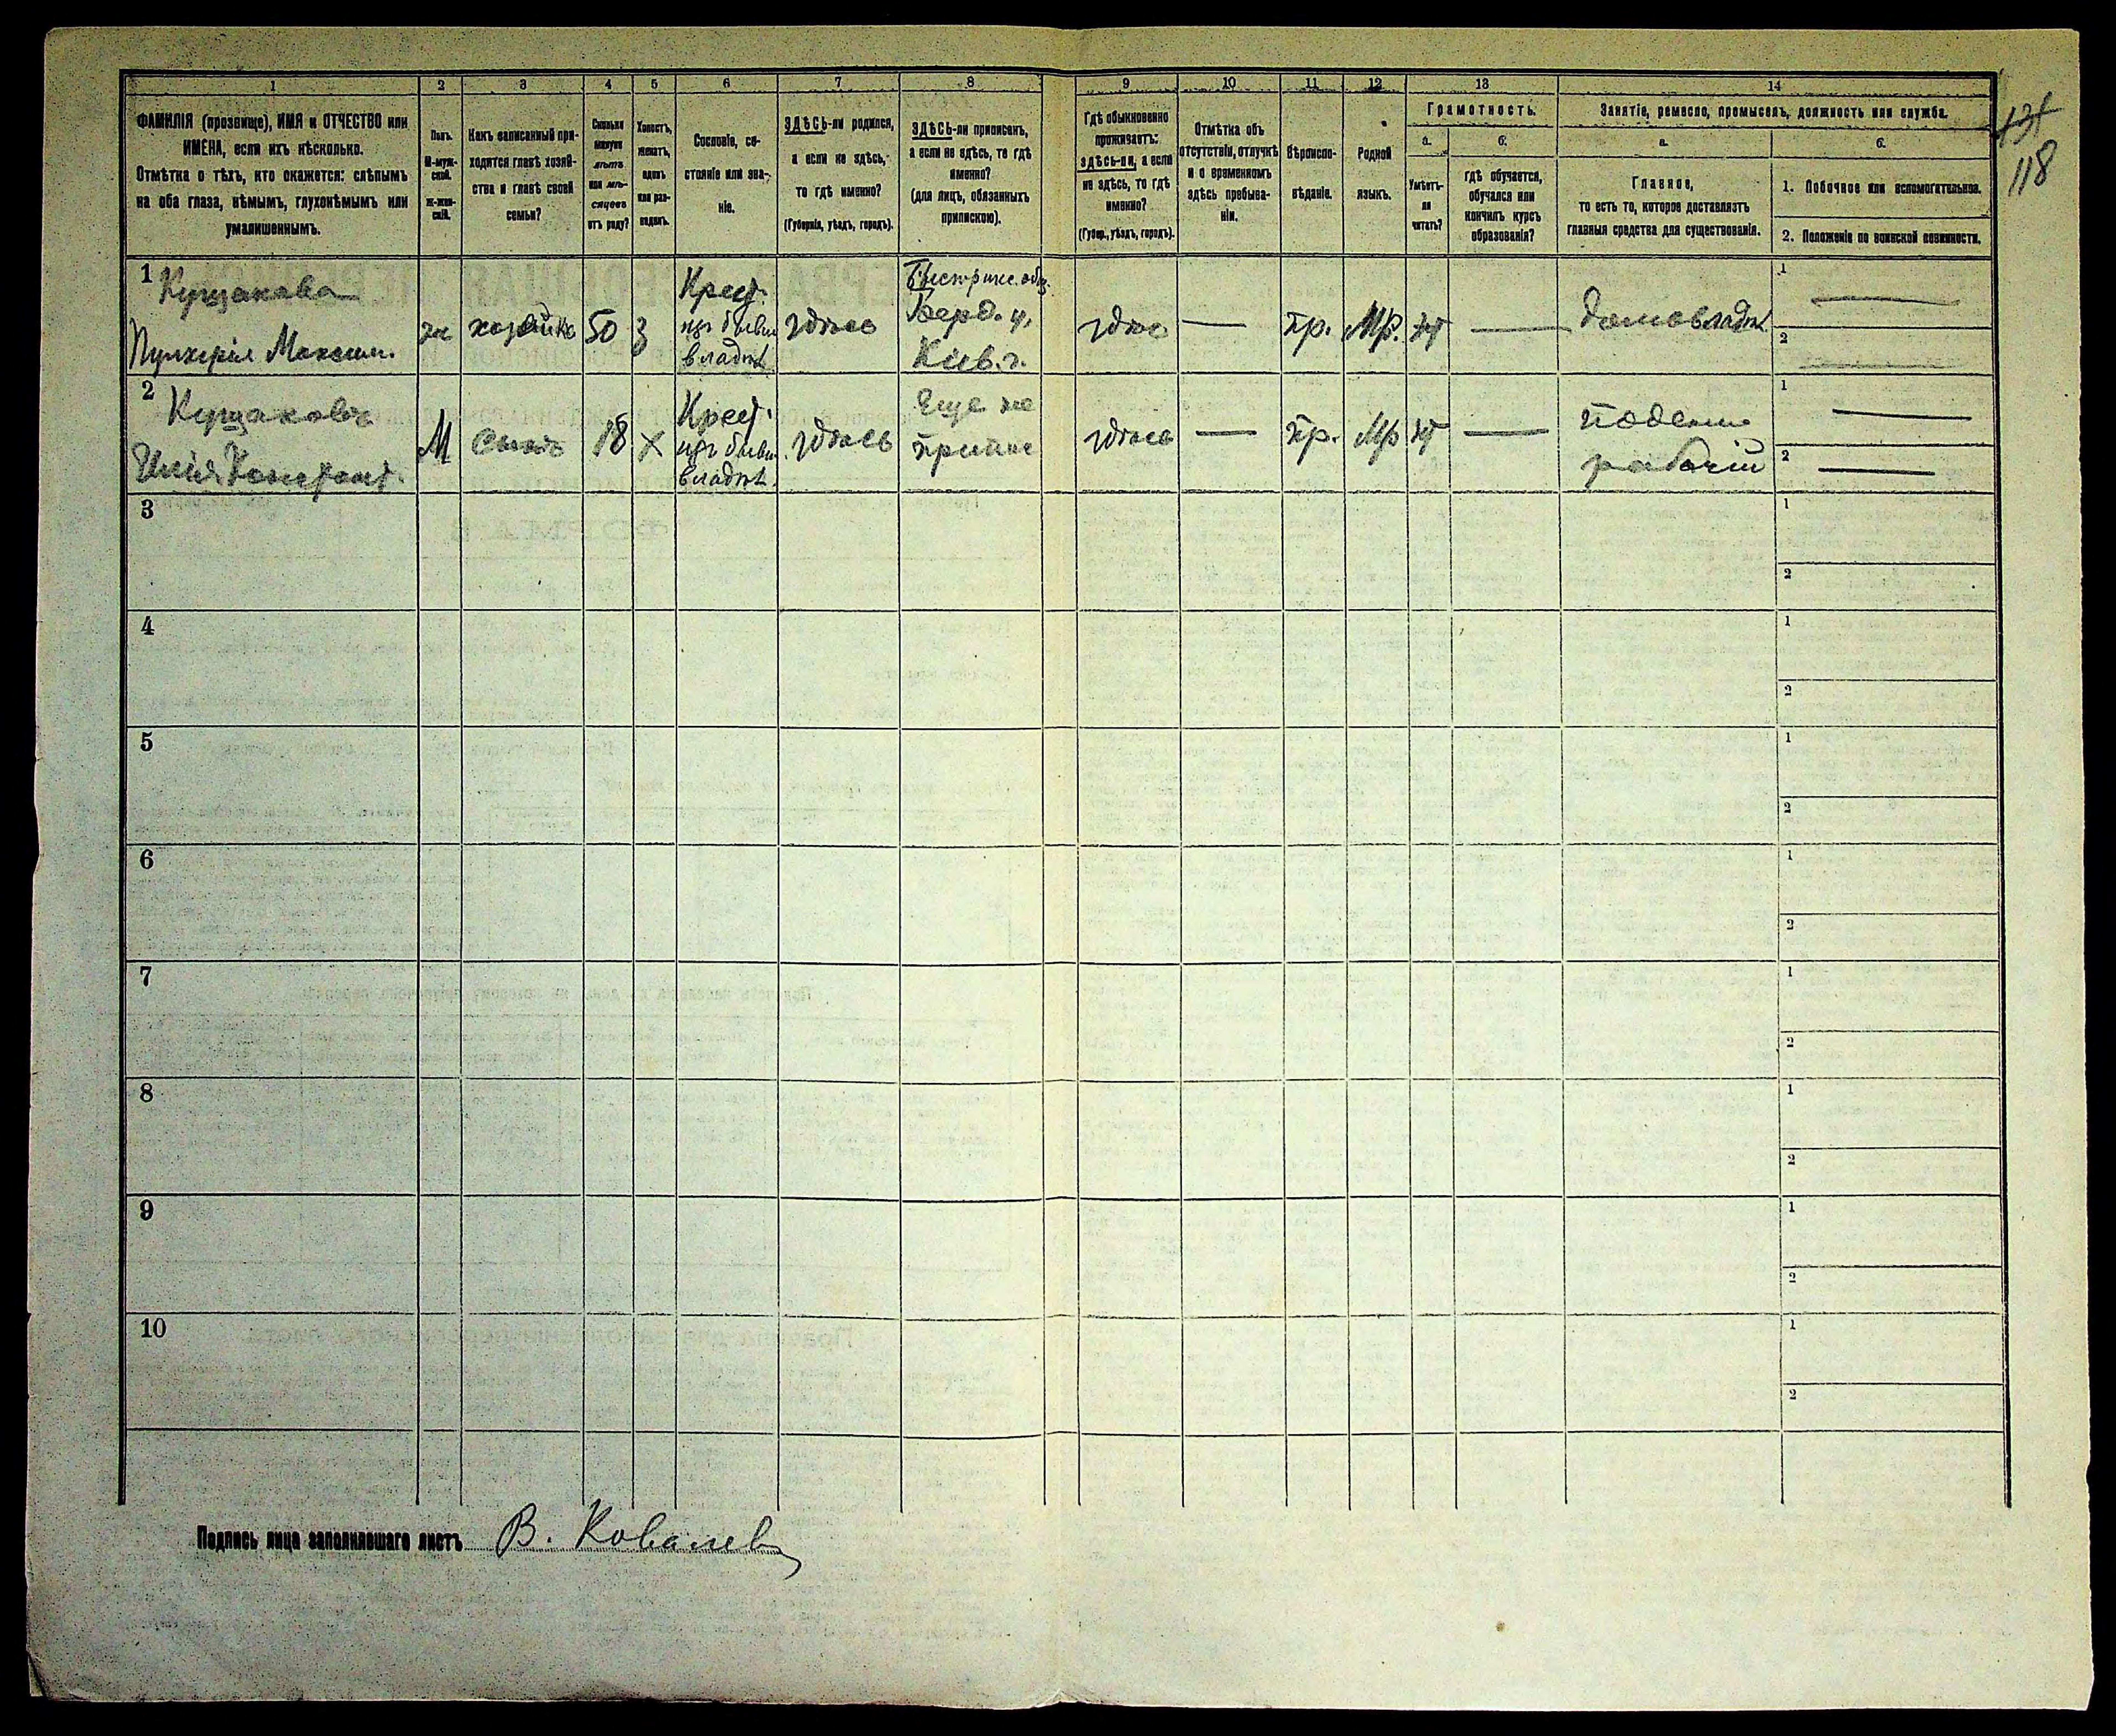 1 2 3 4 5 6 7 8 9 10 11 12 13 14
ФАМИЛІЯ (прозвище), ИМЯ и ОТЧЕСТВО или
ИМЕНА, если ихъ нѣсколько.
Отмѣтка о тѣхъ, кто окажется: слѣпымъ
на оба глаза, нѣмымъ, глухонѣмымъ или
умалишеннымъ.
Полъ.
М-муж-
ской.
Ж-жен-
скій.
Какъ записанный при-
ходится главѣ хозяй-
ства и главѣ своей
семьи?
Сколько
минуло
лѣтъ
или мѣ-
сяцевъ
отъ роду?
Холостъ,
женатъ,
вдовъ
или раз-
веденъ.
Сословіе, со-
стояніе или зва-
ніе.
ЗДѢСЬ-ли родился,
а если не здѣсь,
то гдѣ именно?
(Губернія, уѣздъ, городъ).
ЗДѢСЬ-ли приписанъ,
а если не здѣсь, то гдѣ
именно?
(для лицъ, обязанныхъ
припискою).
Гдѣ обыкновенно
проживаетъ:
здѣсь-ли, а если
не здѣсь, то гдѣ
именно?
(Губер., уѣздъ, городъ).
Отмѣтка объ
отсутствіи, отлучкѣ
и о временномъ
здѣсь пребыва-
ніи.
Вѣроиспо-
вѣданіе.
Родной
языкъ.
Грамотность.
а.
Умѣетъ-
ли
читать?
б.
гдѣ обучается,
обучался или
кончилъ курсъ
образованія?
Занятіе, ремесло, промыселъ, должность или служба.
а.
Главное,
то есть то, которое доставляетъ
главныя средства для существованія.
б.
1. Побочное или вспомогательное.
2. Положеніе по воинской повинности.
118
1
Кущакова
Пулхерія Максим.
ж
хозяйка
50
З
Крест.
изъ бывш
владѣл
здѣсь
Бердо. у.
Кіев. г.
здѣс
—
пр.
Мр.
нт
—
домовладѣл
1 —
2 —
2
Кущаковъ
Илія Констант.
М
сынъ
18
Х
Крест.
изъ бывш
владѣл.
здѣсь
Еще не
припис
здѣсь
—
пр.
Мр
нт
—
поденн
рабочій
1 —
2 —
3
1
2
4
1
2
5
1
2
6
1
2
7
1
2
8
1
2
9
1
2
10
1
2
Подпись лица заполнившаго листъ В. Ковалев